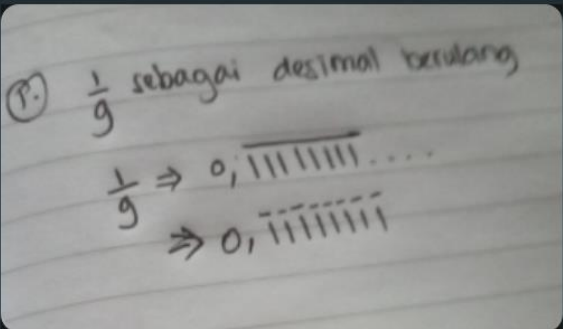 P. 1/9 sebagai desimal berulang
1/9 ⇒ 0,11111111....
⇒ 0,11111111